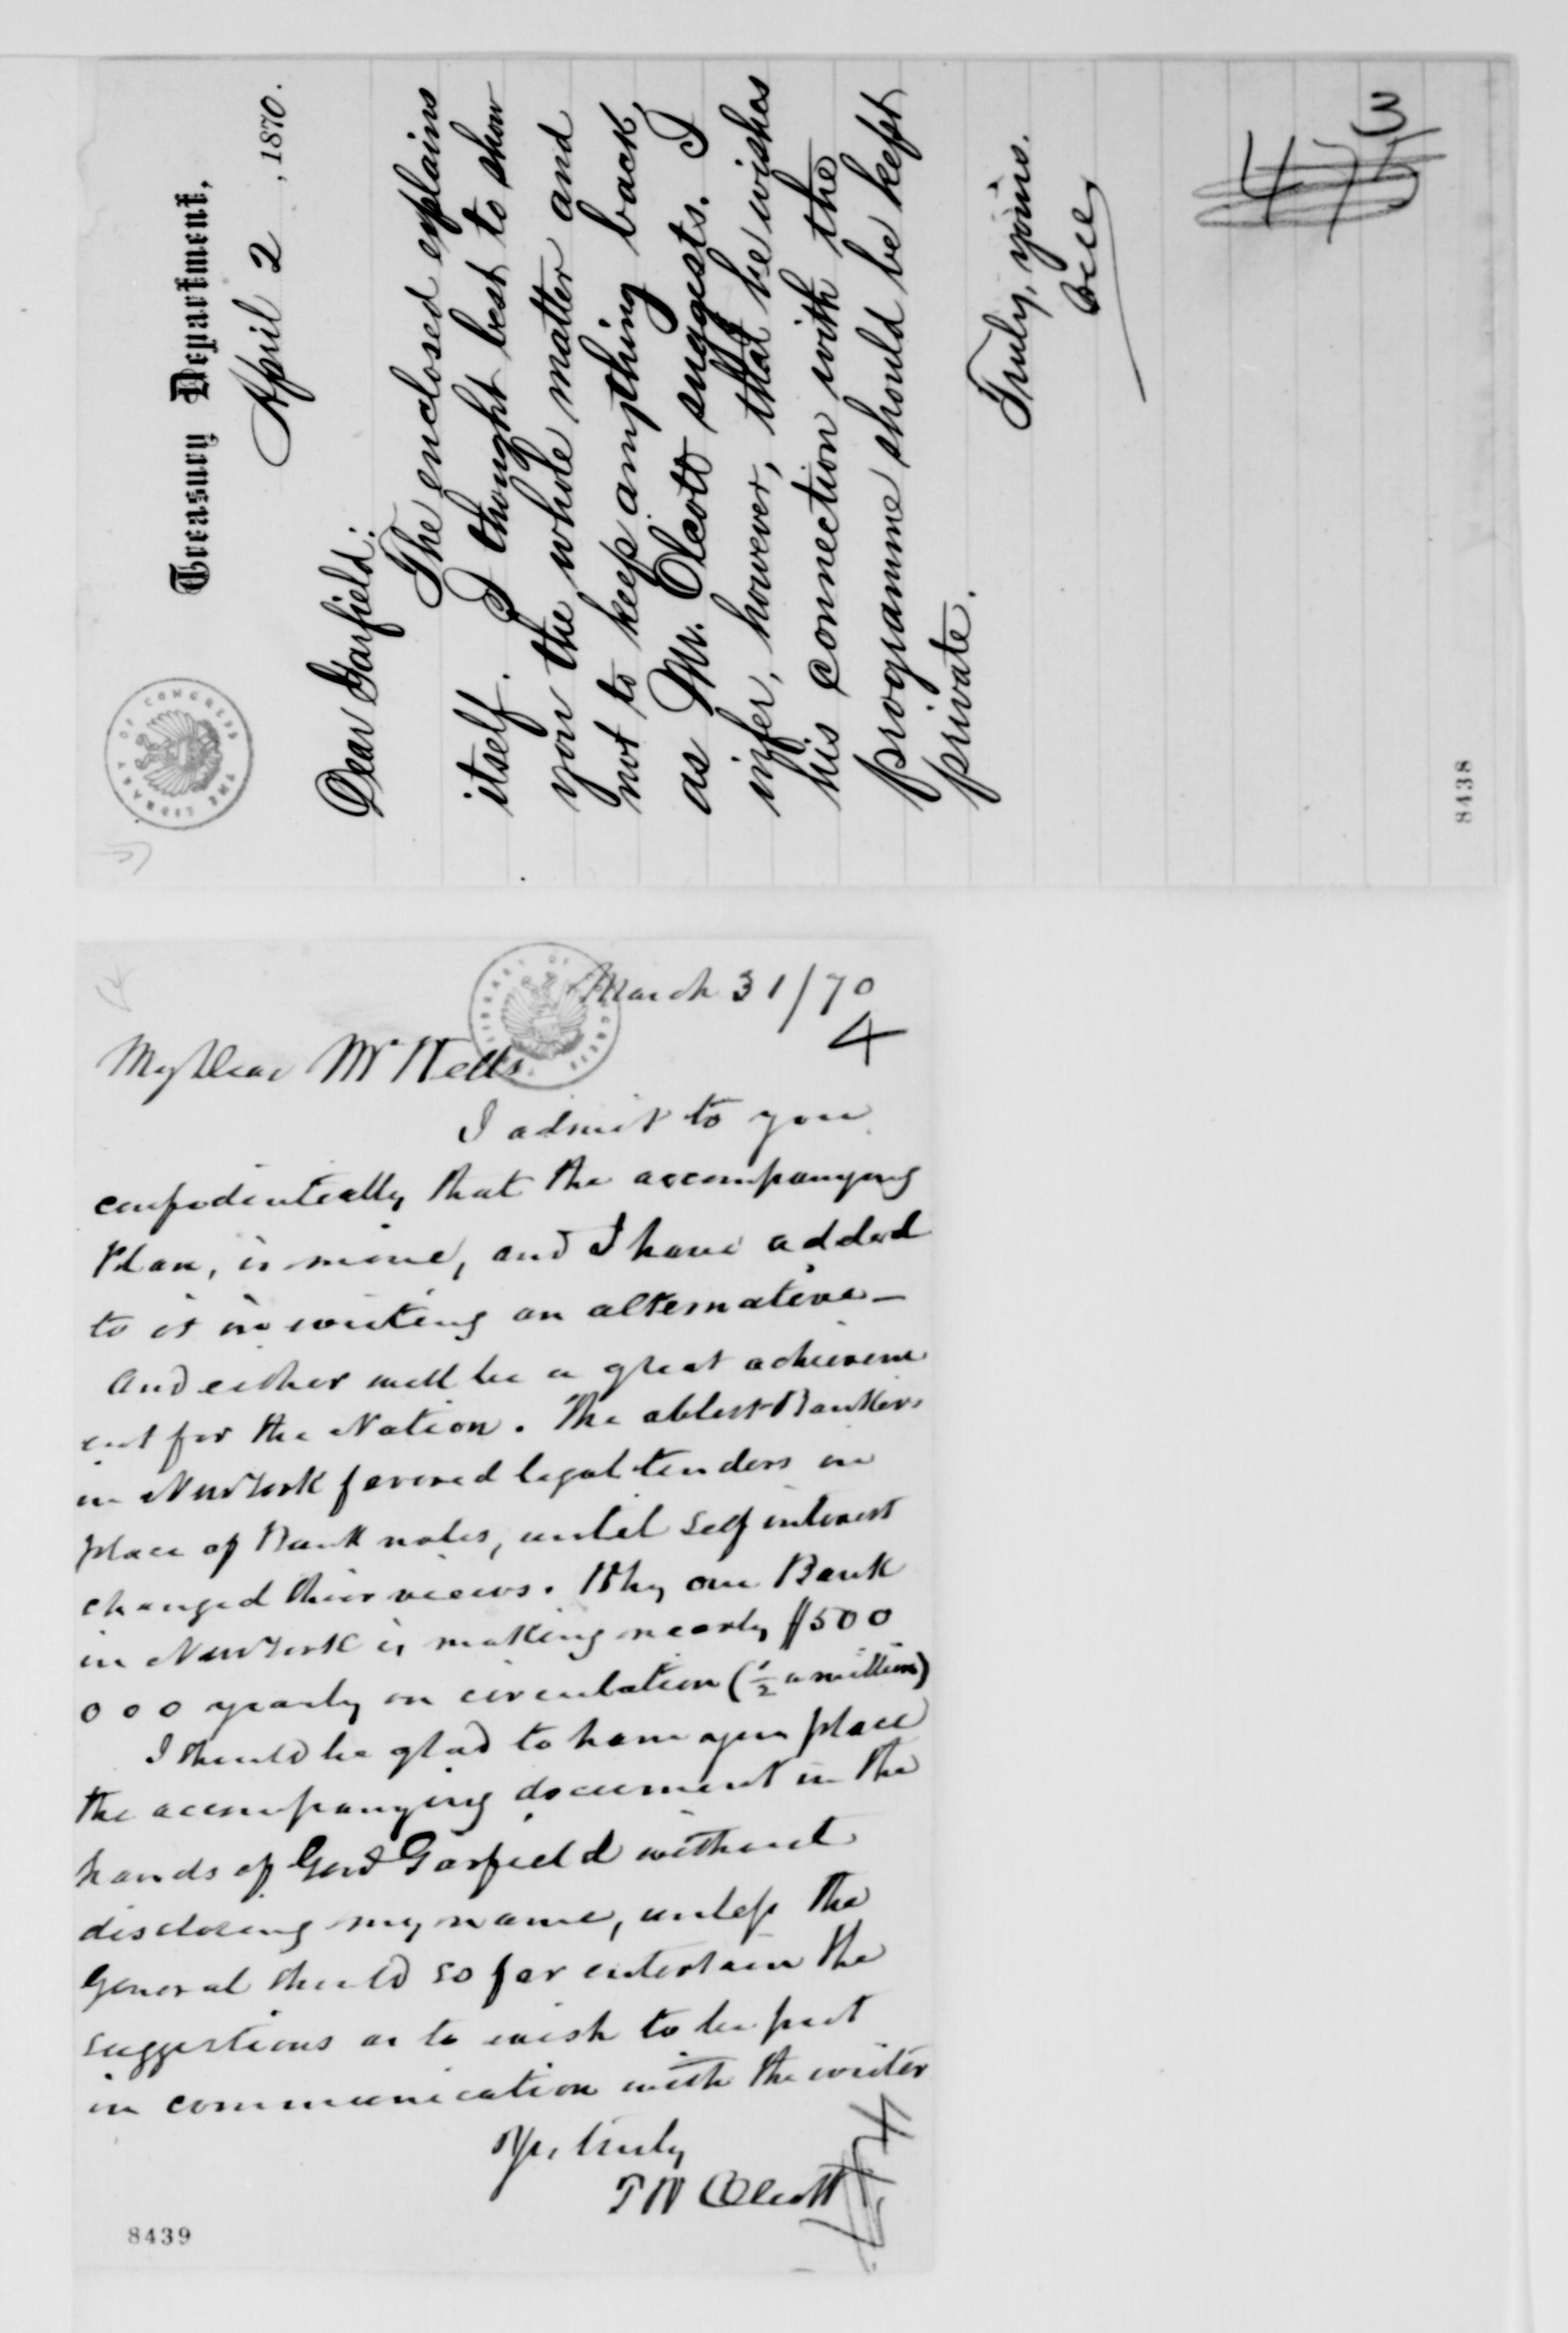 Treasury Department,
April 2, 1870.
Dear Garfield:
The enclosed explains
itself. I thought best to show
you the whole matter and
not to keep anything back,
as Mr. Olcott suggests. I
infer, however, that he wishes
his connection with the
programme should be kept
private.
Truly, yours.
3
8438
THE LIBRARY OF CONGRESS
March 31/70
4
My Dear Mr Wells
I admit to you
confidentially that the accompanying
Plan, is mine, and I have added
to it in writing an alternative—
and either will be a great achievem
ent for the Nation. The ablest Bankers
in New York favored legal tenders in
place of Bank notes, until self interest
changed their views. Why one Bank
in New York is making nearly $500
000 yearly on circulation (½ a million)
I should be glad to have you place
the accompanying document in the
hands of Genl Garfield without
disclosing my name, unless the
General should so far entertain the
suggestions as to wish to be put
in communication with the writer
Yrs, truly
T W Olcott
8439